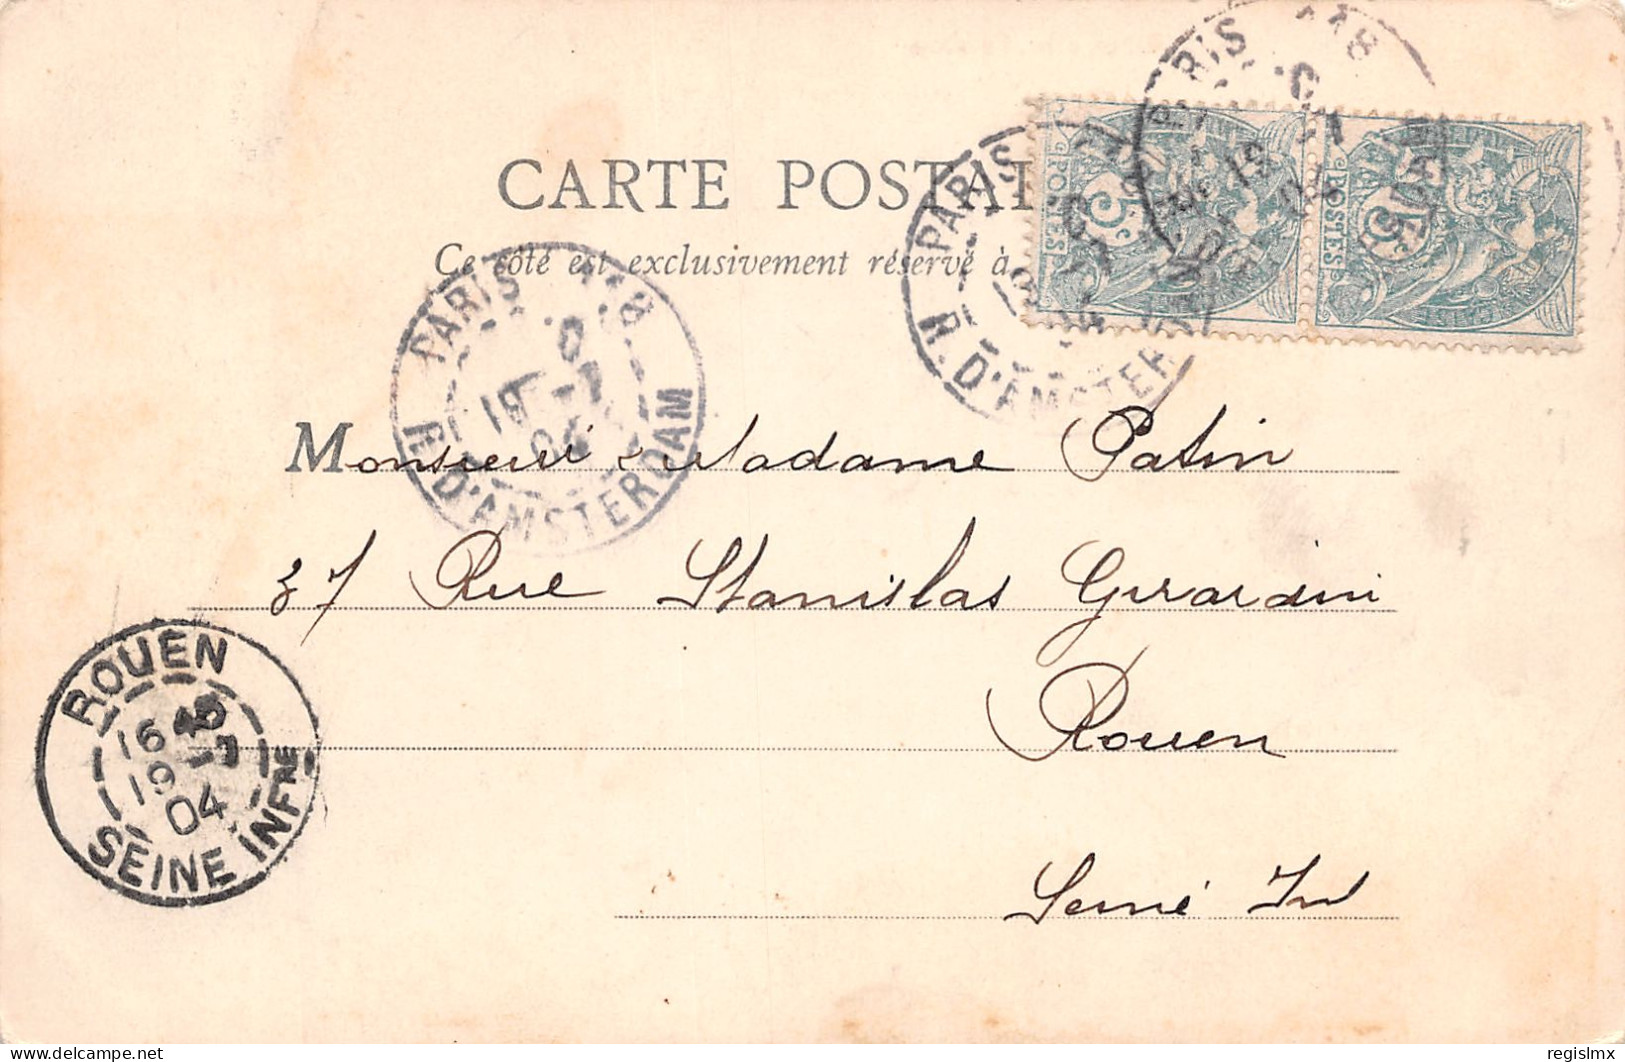 CARTE POSTAL
Ce côté est exclusivement réservé à
PARIS 18
R. D'AMSTERDAM
19 -7
04
PARIS
R. D'AMSTER
PARIS 18
19
04
5
POSTES
5
POSTES
Monsieur et Madame Patin
37 Rue Stanislas Girardin
Rouen
Seine Inf
ROUEN
16 45
19 -7
04
SEINE INFRE
delcampe.net
regislmx